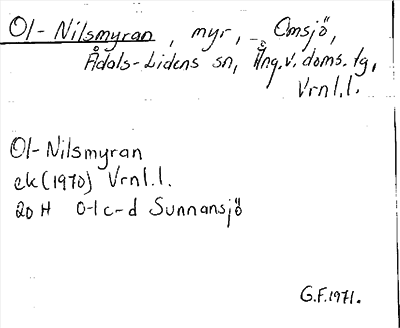 Ol-Nilsmyran, myr, Omsjö,
Ådals-Lidens sn, Ång.v.doms.tg,
Vrnl.l.
Ol-Nilsmyran
ek(1970) Vrnl.l.
20 H 0-1 c-d Sunnansjö
G.F.1971.